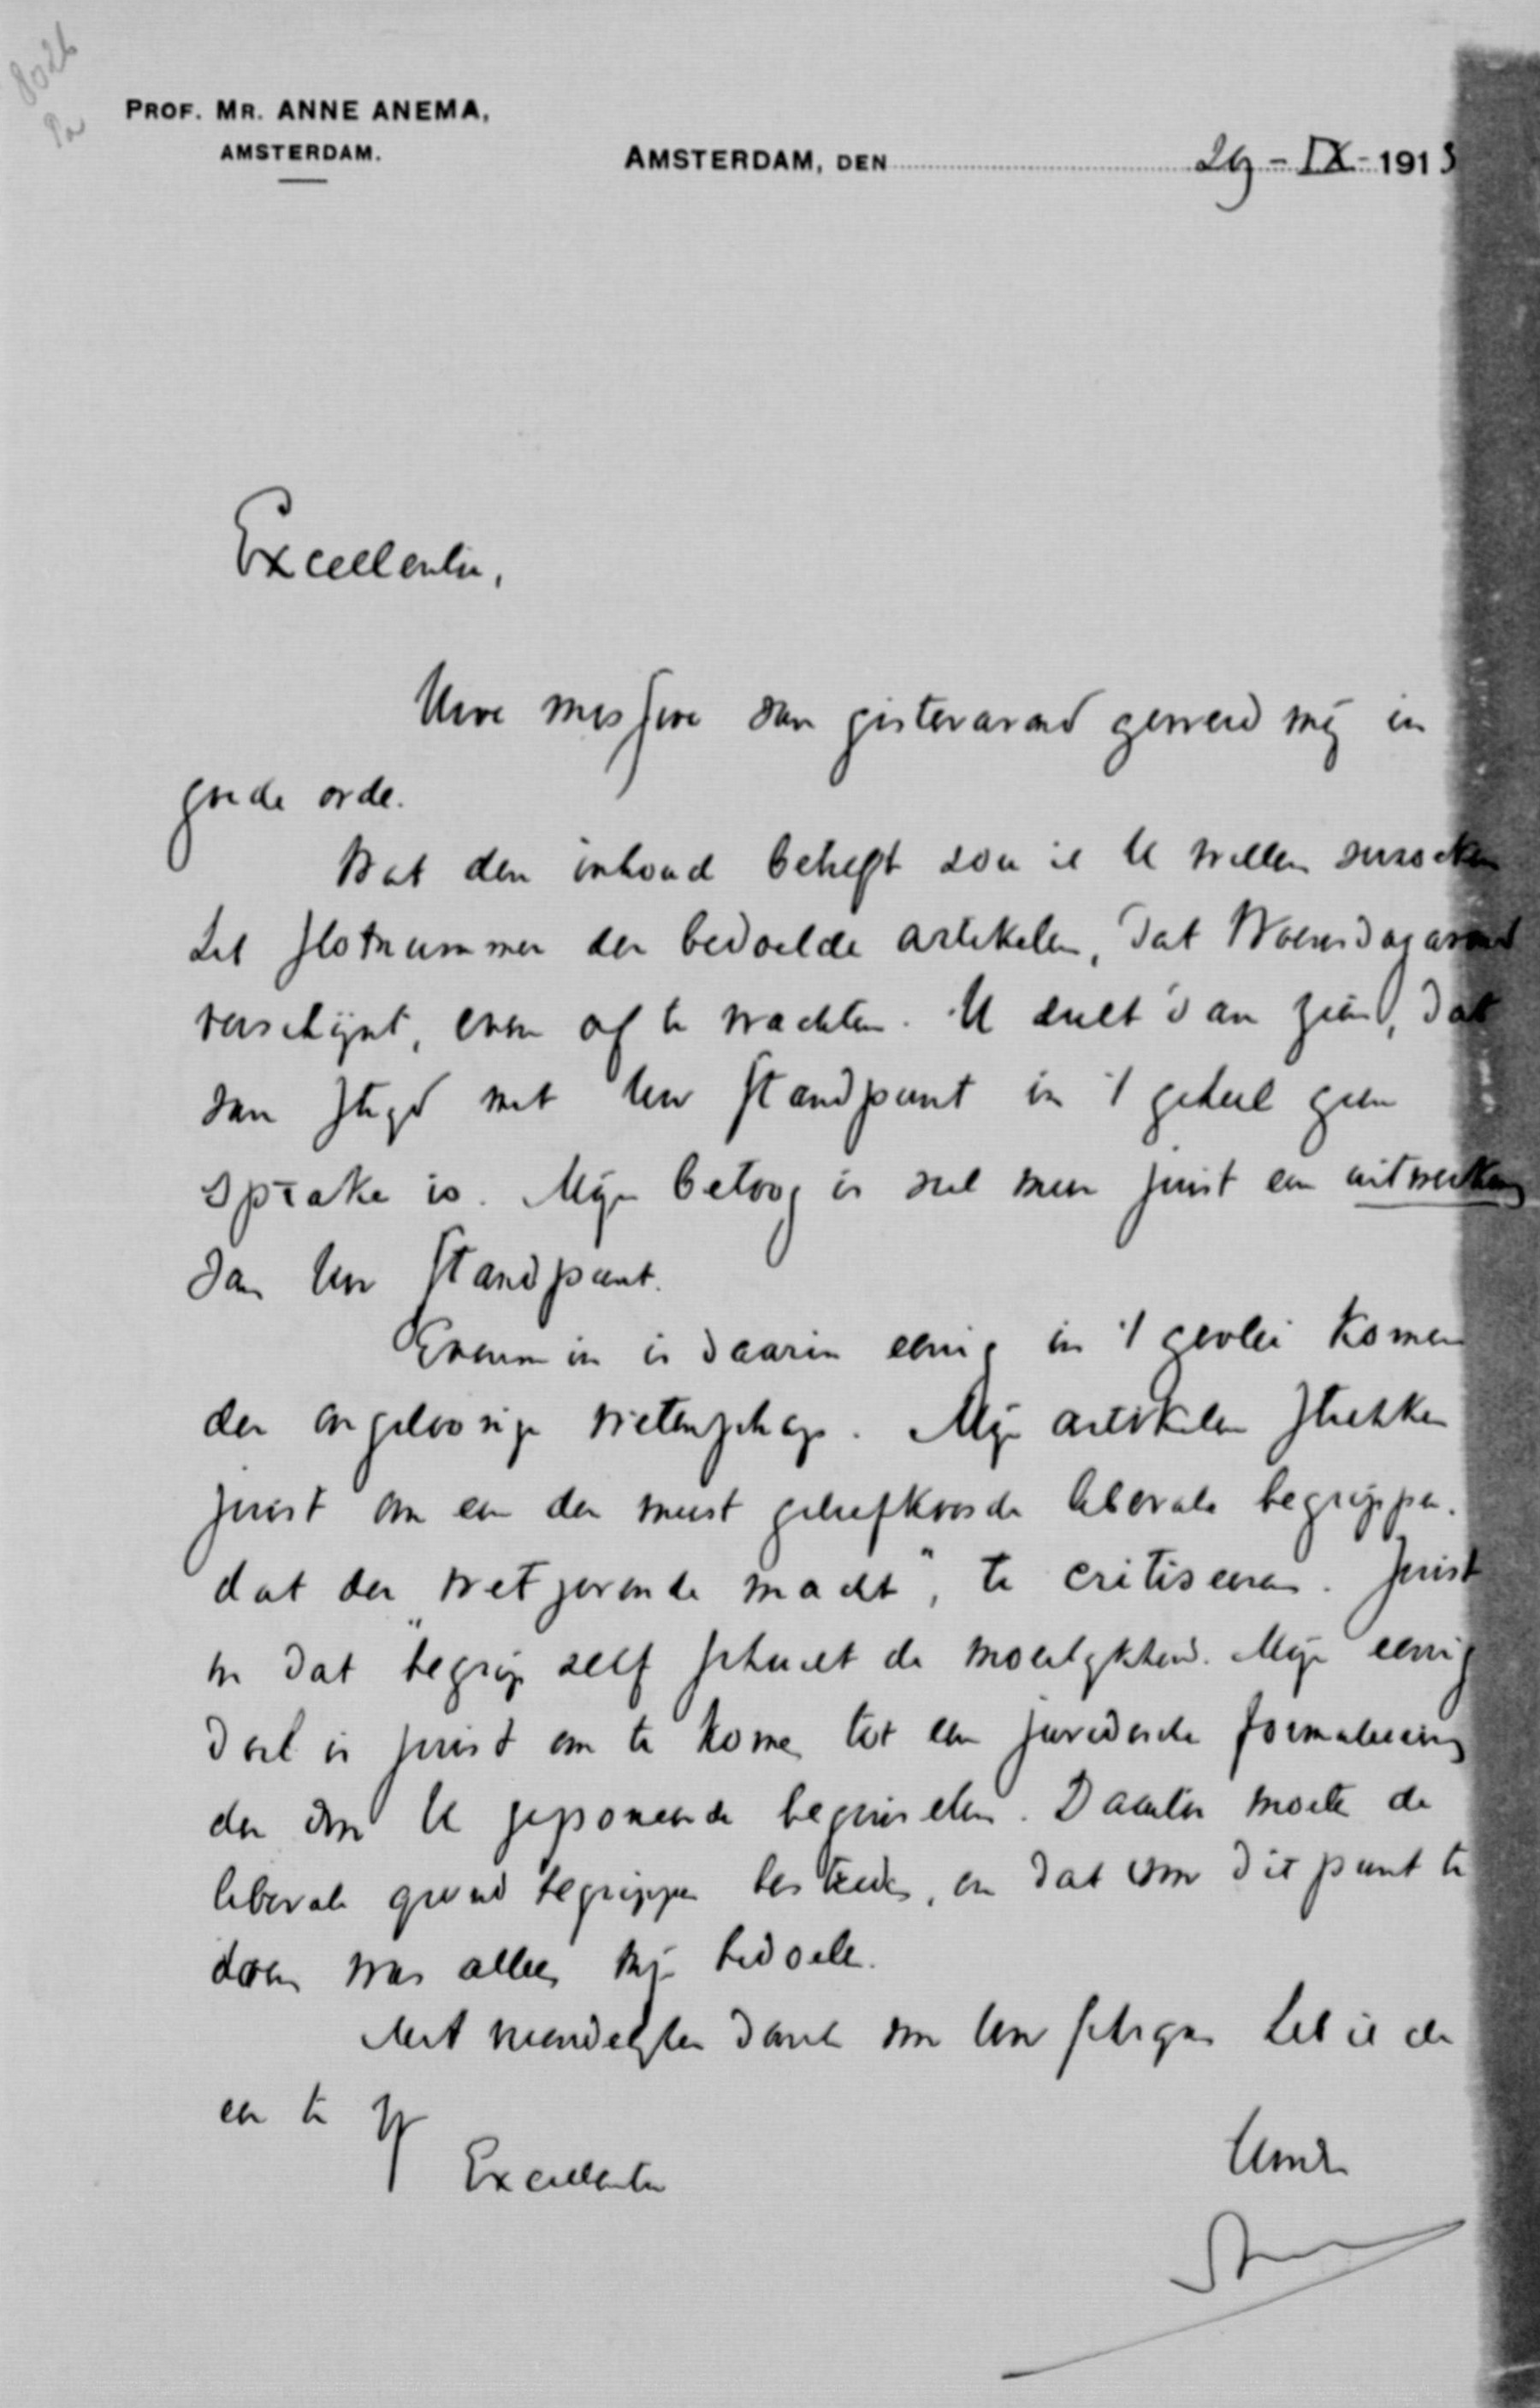 8026
PROF. MR. ANNE ANEMA,
AMSTERDAM.
AMSTERDAM, DEN 29-IX-1913
Excellentie,
Uwe missive van gisteravond gewerd mij in
goede orde.
Wat den inhoud betreft zou ik U willen verzoeken
het slotnummer der bedoelde artikelen, dat Woensdagavond
verschijnt, even af te wachten. U zult dan zien, dat
van strijd met Uw standpunt in 't geheel geen
sprake is. Mijn betoog is veel meer juist een uitwerking
van Uw standpunt.
Evenmin is daarin eenig in 't gevlei komen
der ongeloovige wetenschap. Mijn artikelen strekken
juist om een der meest geliefkoosde liberale begrippen.
dat der „wetgevende macht", te critiseeren. Juist
in dat begrip zelf schuilt de moeilijkheid. Mijn eenig
doel is juist om te komen tot een juridische formuleering
der door U geponeerde beginselen. Daartoe moeten de
liberale grondbegrippen bestreden, en dat voor dit punt te
doen was alleen mijn bedoelen.
Met vriendelijken dank voor Uw schrijven heb ik de
eer te zijn
Excellentie
Uwe